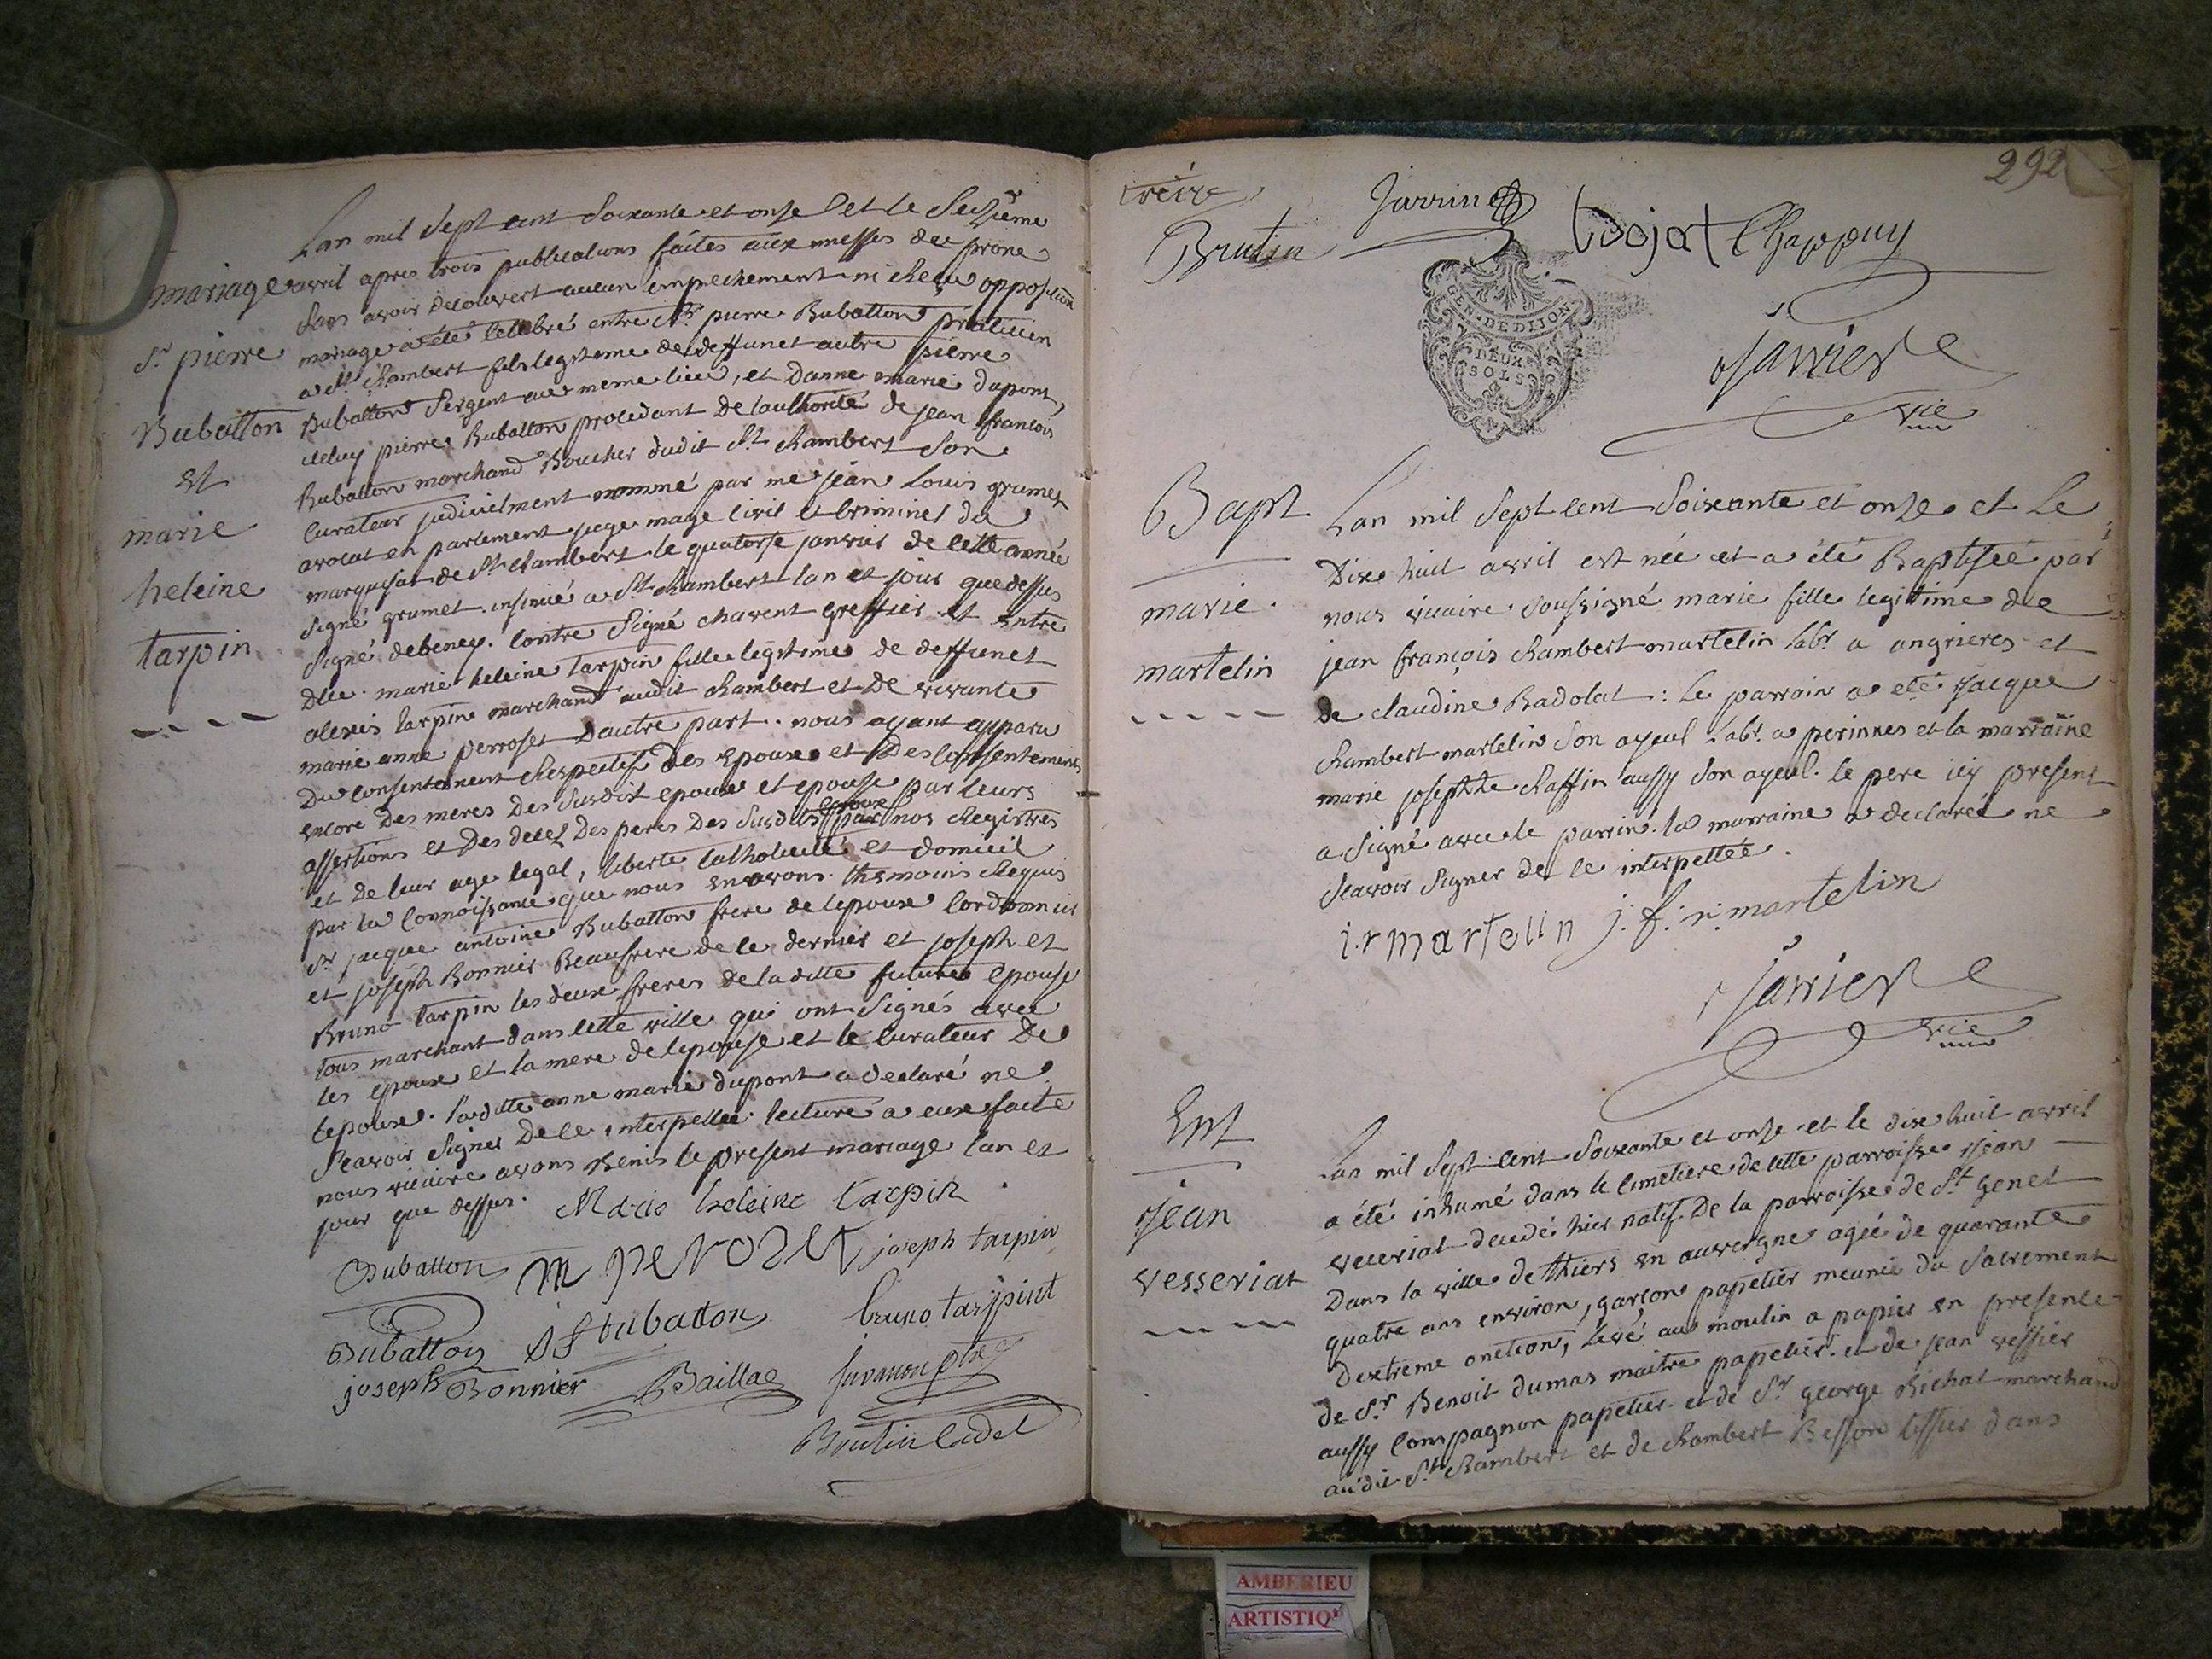 mariage
Sr pierre
Bubatton
et
marie
heleine
tarpin
Lan mil Sept cent Soixante et onze et le Seizième
avril apres trois publications faites aux messes de prone
Sans avoir decouvert aucun empechement ni Receu opposition
mariage a été celebré entre Sr pierre Bubatton praticien
a St Rambert fils legitime de deffunct autre pierre
Bubatton Sergent au meme lieu, et Danne marie dupont,
iceluy pierre Bubatton procedant De lauthorité de jean francois
Bubatton marchand Boucher dudit St Rambert Son
Curateur judicielment nommé par me jean Louis grumet
avocat en parlement juge mage Civil et Criminel du
marquisat de St Rambert le quatorse janvier de cette année
Signé grumet. insinué a St Rambert lan et jour que dessus
Signé debeney. Contre Signé charent greffier et Entre
Dlle marie heleine tarpin fille legitime de deffunct
alexis tarpin marchand audit Rambert et De vivante
marie anne perroset D'autre part. nous ayant apparu
Du Consentement Respectif Des Epoux et Des Consentements
encore Des meres Des Susdit epoux et epouse par leurs
assertions et Des deces Des peres Des Susdits Epoux par nos Registres
et De leur age legal, liberté Catholicité et domicil
par la Connoissance que nous en avons. themoins Requis
Sr jacque antoine Bubatton frere de lepoux Cordonnier
et joseph Bonnier Beaufrere de ce dernier et joseph et
Bruno tarpin les deux freres de la ditte future Epouse
tous marchant dans cette ville qui ont Signés avec
les epoux et la mere de lepouse et le Curateur De
lepoux. laditte anne marie dupont a declaré ne
Scavoir Signer De ce interpellée. lecture a eux faite
nous vicaire avons Benis le present mariage lan et
jour que dessus. Marie heleine tarpin
Bubatton m perozet joseph tarpin
Bubatton bubatton bruno tarpint
joseph Bonnier Baillac
Brutin Cadet
292
Brutin Jarrin tojat Chappuy
GEN. DE DIJON
DEUX
SOLS
Jarrier
vic
Bapt
marie
martelin
Lan mil Sept Cent Soixante et onze et Le
Dix huit avril est née et a été Baptisée par
nous vicaire Soussigné marie fille legitime de
jean françois Rambert martelin labr a angrieres et
de claudine Badolat: Le parrain a eté Jacque
Rambert martelin Son ayeul Labr a perinnes et la marraine
marie josephte Chaffin aussy Son ayeul. le pere icy present
a Signé avec le parrin. la marraine a declaré ne
Scavoir Signer de ce interpellée.
i.r martelin j. f. r. martelin
Jarrier
vic
Ent
Jean
vesseriat
Lan mil Sept Cent Soixante et onze et le dix huit avril
a été inhumé dans le Cimetiere de cette parroisse Jean
veceriat decedé hier natif De la parroisse de St Genet
Dans la ville de thiers en auvergne agée de quarante
quatre ans environ, garcon papetier meunie du Sacrement
Dextreme onction, Levé au moulin a papier en presence
de Sr Benoit dumas maitre papetier et de jean vessier
aussy Compagnon papetier et de Sr george Bichat marchand
audit St Rambert et de Rambert Besson tissier dans
AMBERIEU
ARTISTIQ